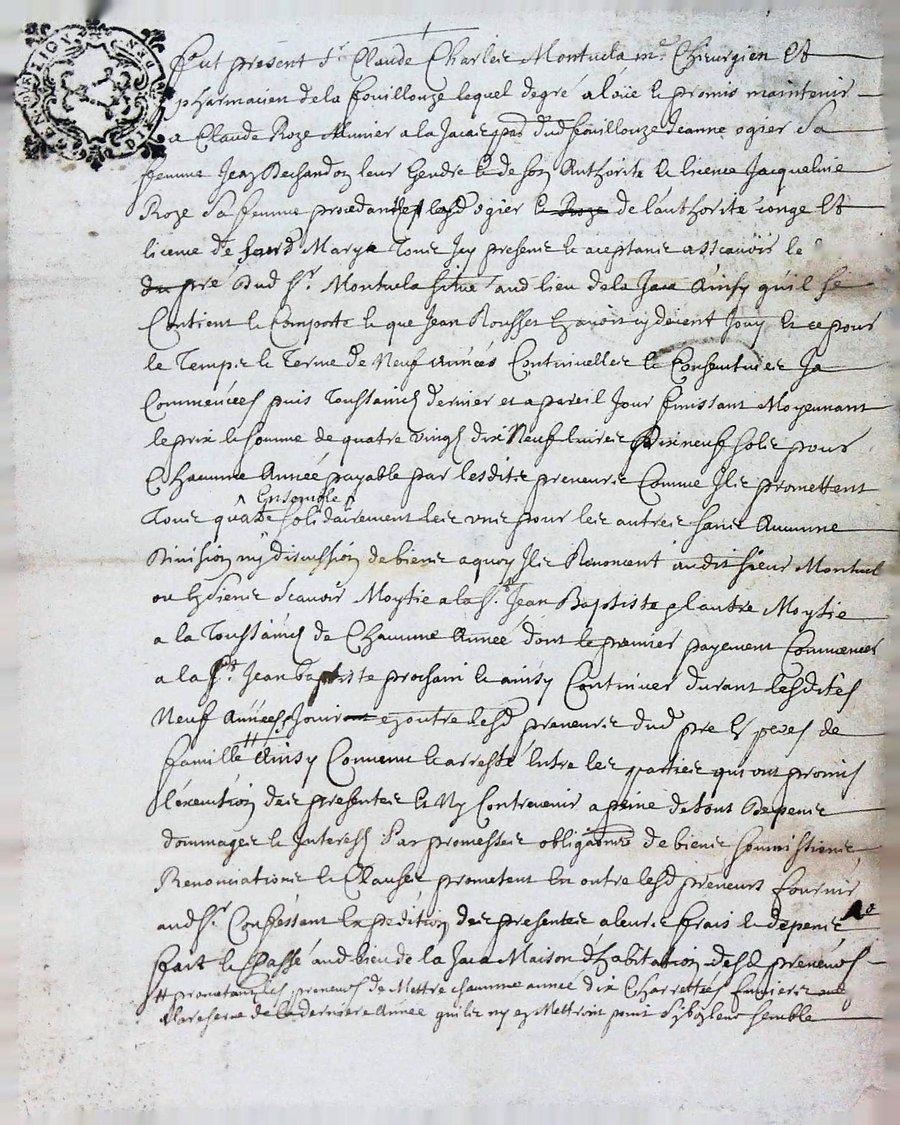 fut present Sr. Claude Charles Montucla mre. Chirurgien Et
pharmacien de la fouillouze lequel de gré a loüé Et promis maintenir
a Claude Roze Munier a la Jacae dud fouillouze Jeanne ogier Sa
femme Jean Dechandon leur Gendre Et de son Authorite Et licence Jacqueline
Roze Sa femme procedantes lad ogier Et Roze de l'authorité conge Et
licence de leurd Marys Tous Icy presens Et aceptans assçavoir le
du pré Dud Sr. Montucla situé aud lieu de la Jaca Ainsy qu'il se
Contient Et Comporte Et que Jean Rousset Jouy Et ce pour
le Temps Et Terme de Neuf années Continuelles Et Consecutives Ja
Commencées puis Toussaincts dernier et a pareil Jour finissant Moyennant
le prix Et somme de quatre vingts dix Neuf livres Dixneuf sols pour
Chacunne Année payable par lesdits preneurs Comme Ils promettent
Ensemble
Tous quatre solidairement les uns pour les autres sans Aucunne
Division ny discussion de biens a quoy Ils Renoncent audit sieur Montucl
ou les siens Scavoir Moytie a la St. Jean Baptiste et l'autre Moytie
a la Toussaincts de Chacunne Année dont le premier payement Commencer
a la St. Jean baptiste prochain Et ainsy Continuer durant lesdites
Neuf Années Jouiront en outre lesd preneurs dud pre En peres de
famille # Ainsy Convenu Et arresté Entre les parties qui ont promis
l'exécution des presentes Et Ny Contrevenir a peine de tous Despens
dommages Et Interests Par promesses obligations de biens soumissions
Renonciations Et Clauses prometent En outre lesd preneurs fournir
aud Sr. Expedition des presentes a leurs frais Et depens
fait Et Passé aud lieu de la Jaca Maison d'habitation desd preneurs
# prometant les preneurs de Mettre chacunne année dix Charrettes fumiers
a la reserve de la derniere Année qu'ils n'y en Mettront point Sy bon leur semble